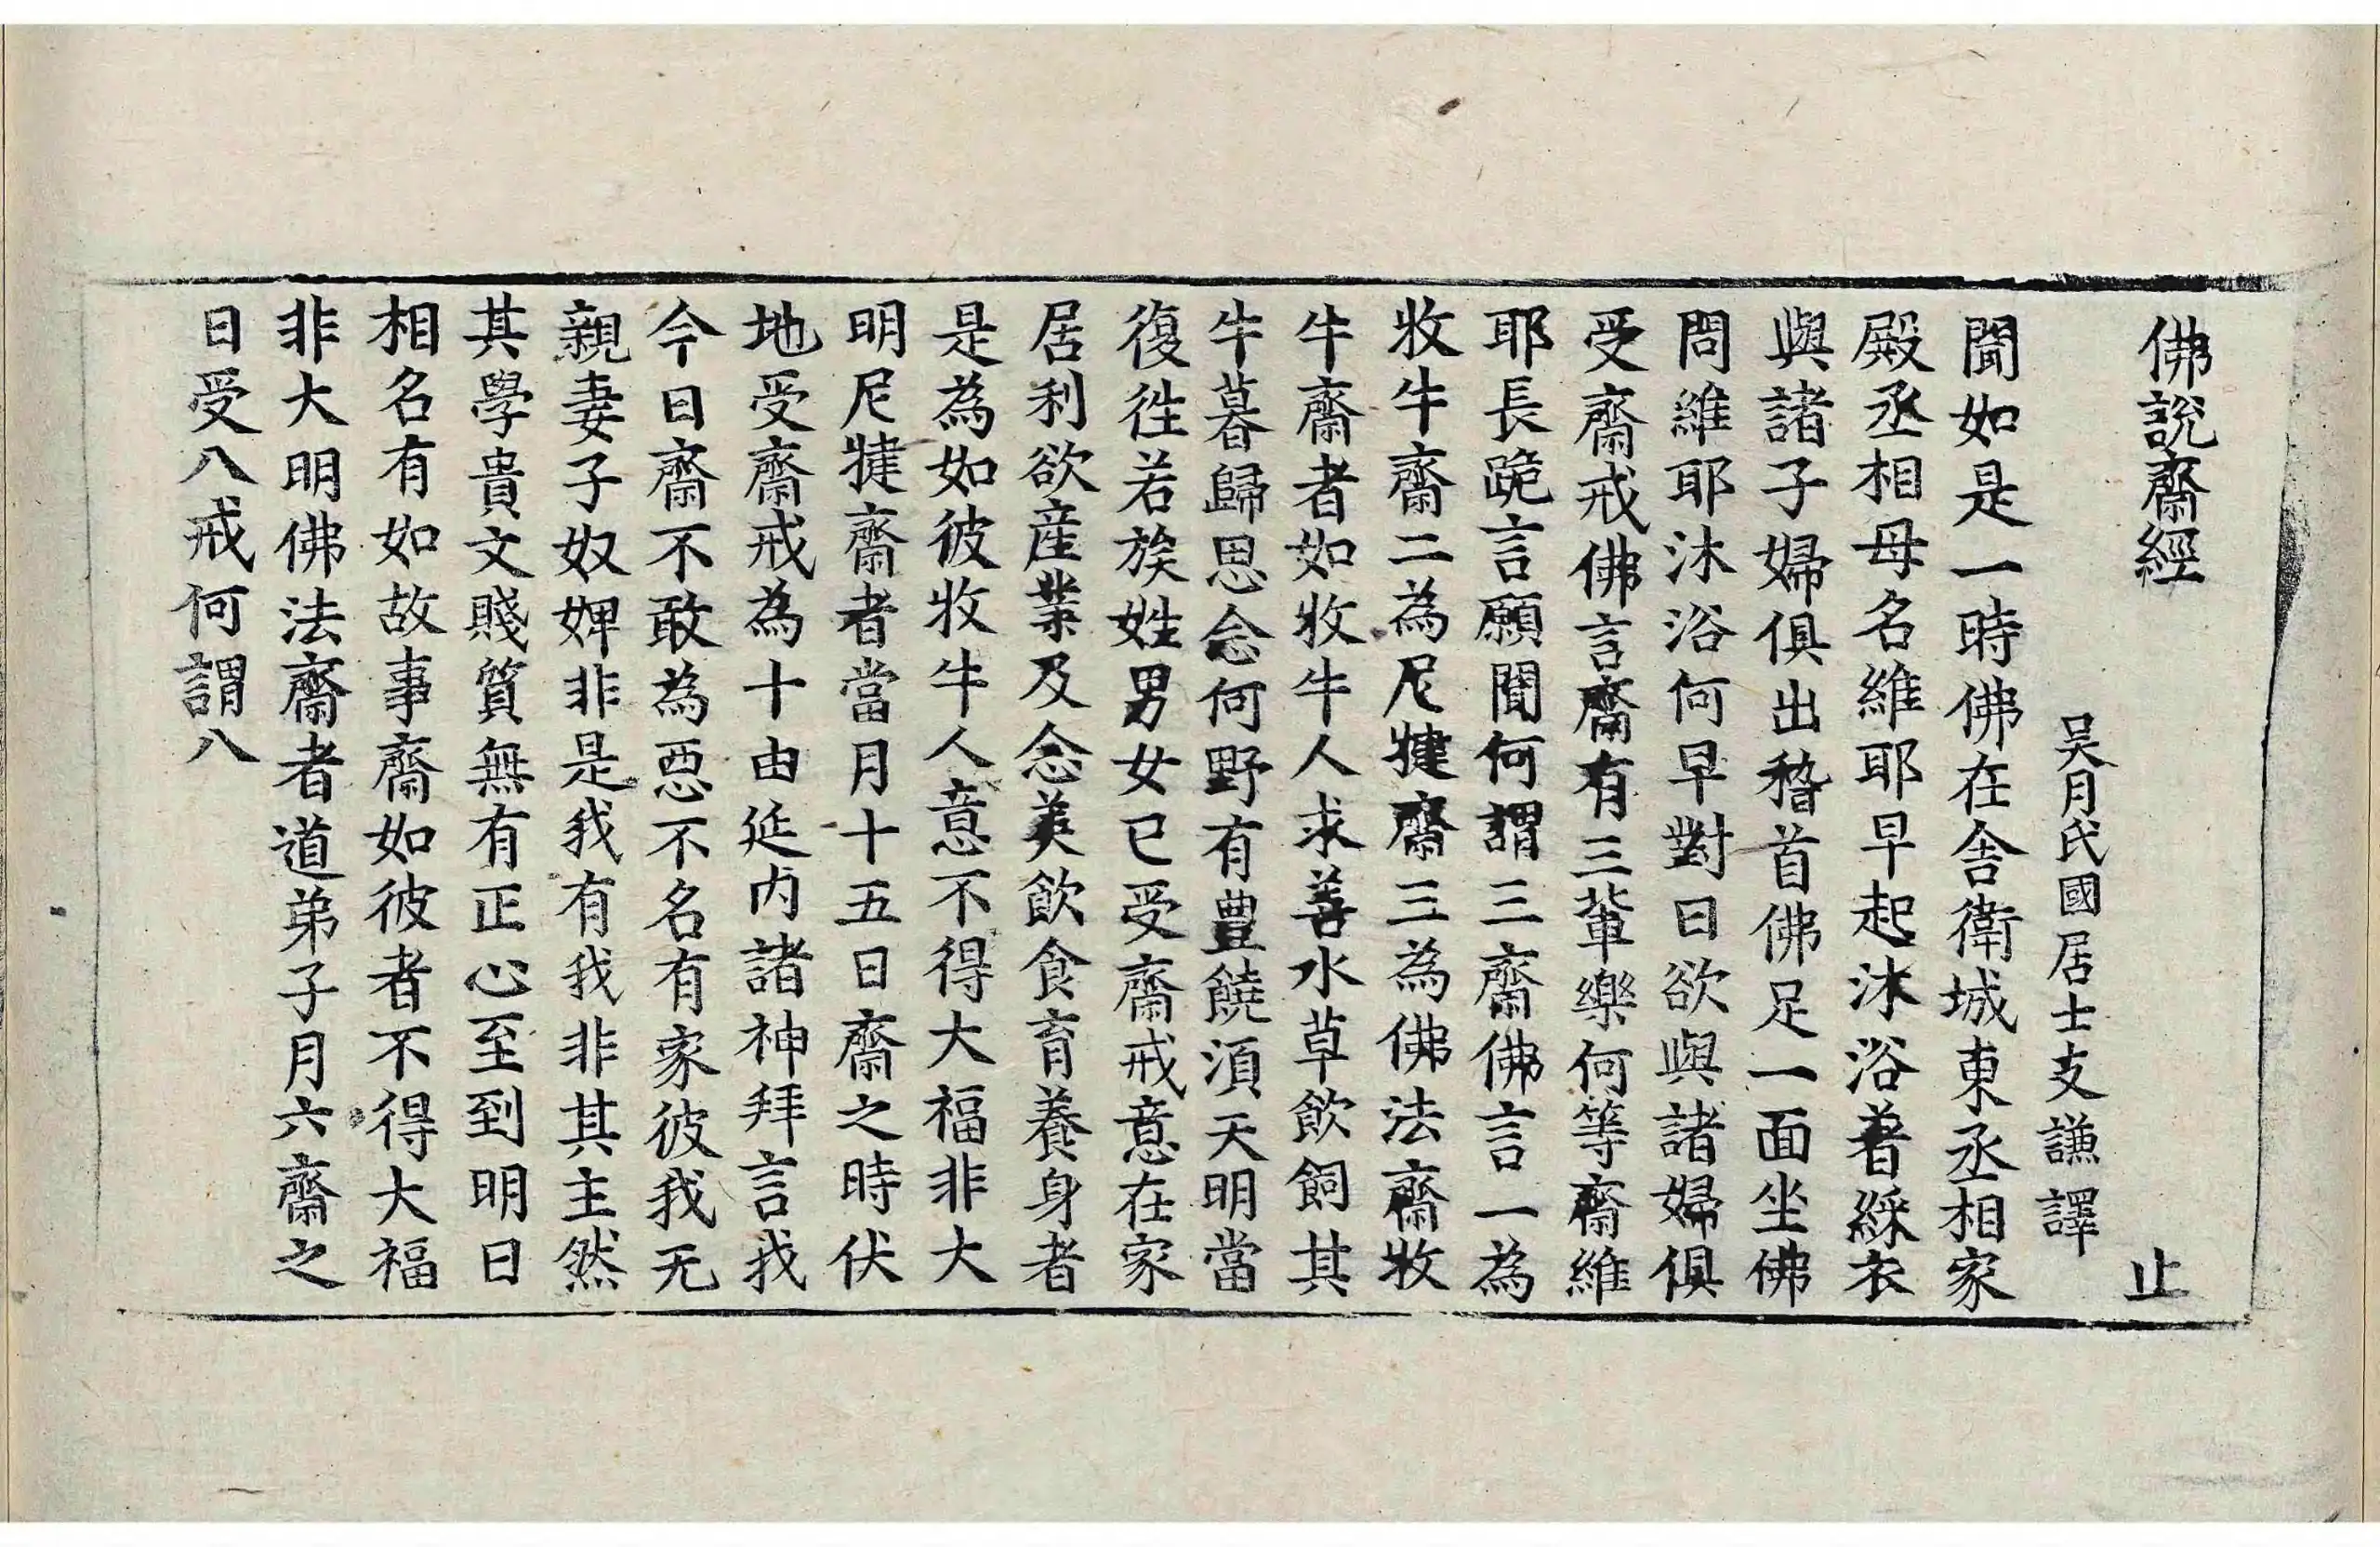 佛說齋經 止
吳月氏國居士支謙譯
聞如是一時佛在舍衛城東丞相家
殿丞相母名維耶早起沐浴着綵衣
與諸子婦俱出稽首佛足一面坐佛
問維耶沐浴何早對曰欲與諸婦俱
受齋戒佛言齋有三輩樂何等齋維
耶長跪言願聞何謂三齋佛言一為
牧牛齋二為尼揵齋三為佛法齋牧
牛齋者如牧牛人求善水草飲飼其
牛暮歸思念何野有豊饒湏天明當
復徃若族姓男女已受齋戒意在家
居利欲產業及念美飲食育養身者
是為如彼牧牛人意不得大福非大
明尼揵齋者當月十五日齋之時伏
地受齋戒為十由延内諸神拜言我
今日齋不敢為惡不名有家彼我无
親妻子奴婢非是我有我非其主然
其學貴文賤質無有正心至到明日
相名有如故事齋如彼者不得大福
非大明佛法齋者道弟子月六齋之
日受八戒何謂八